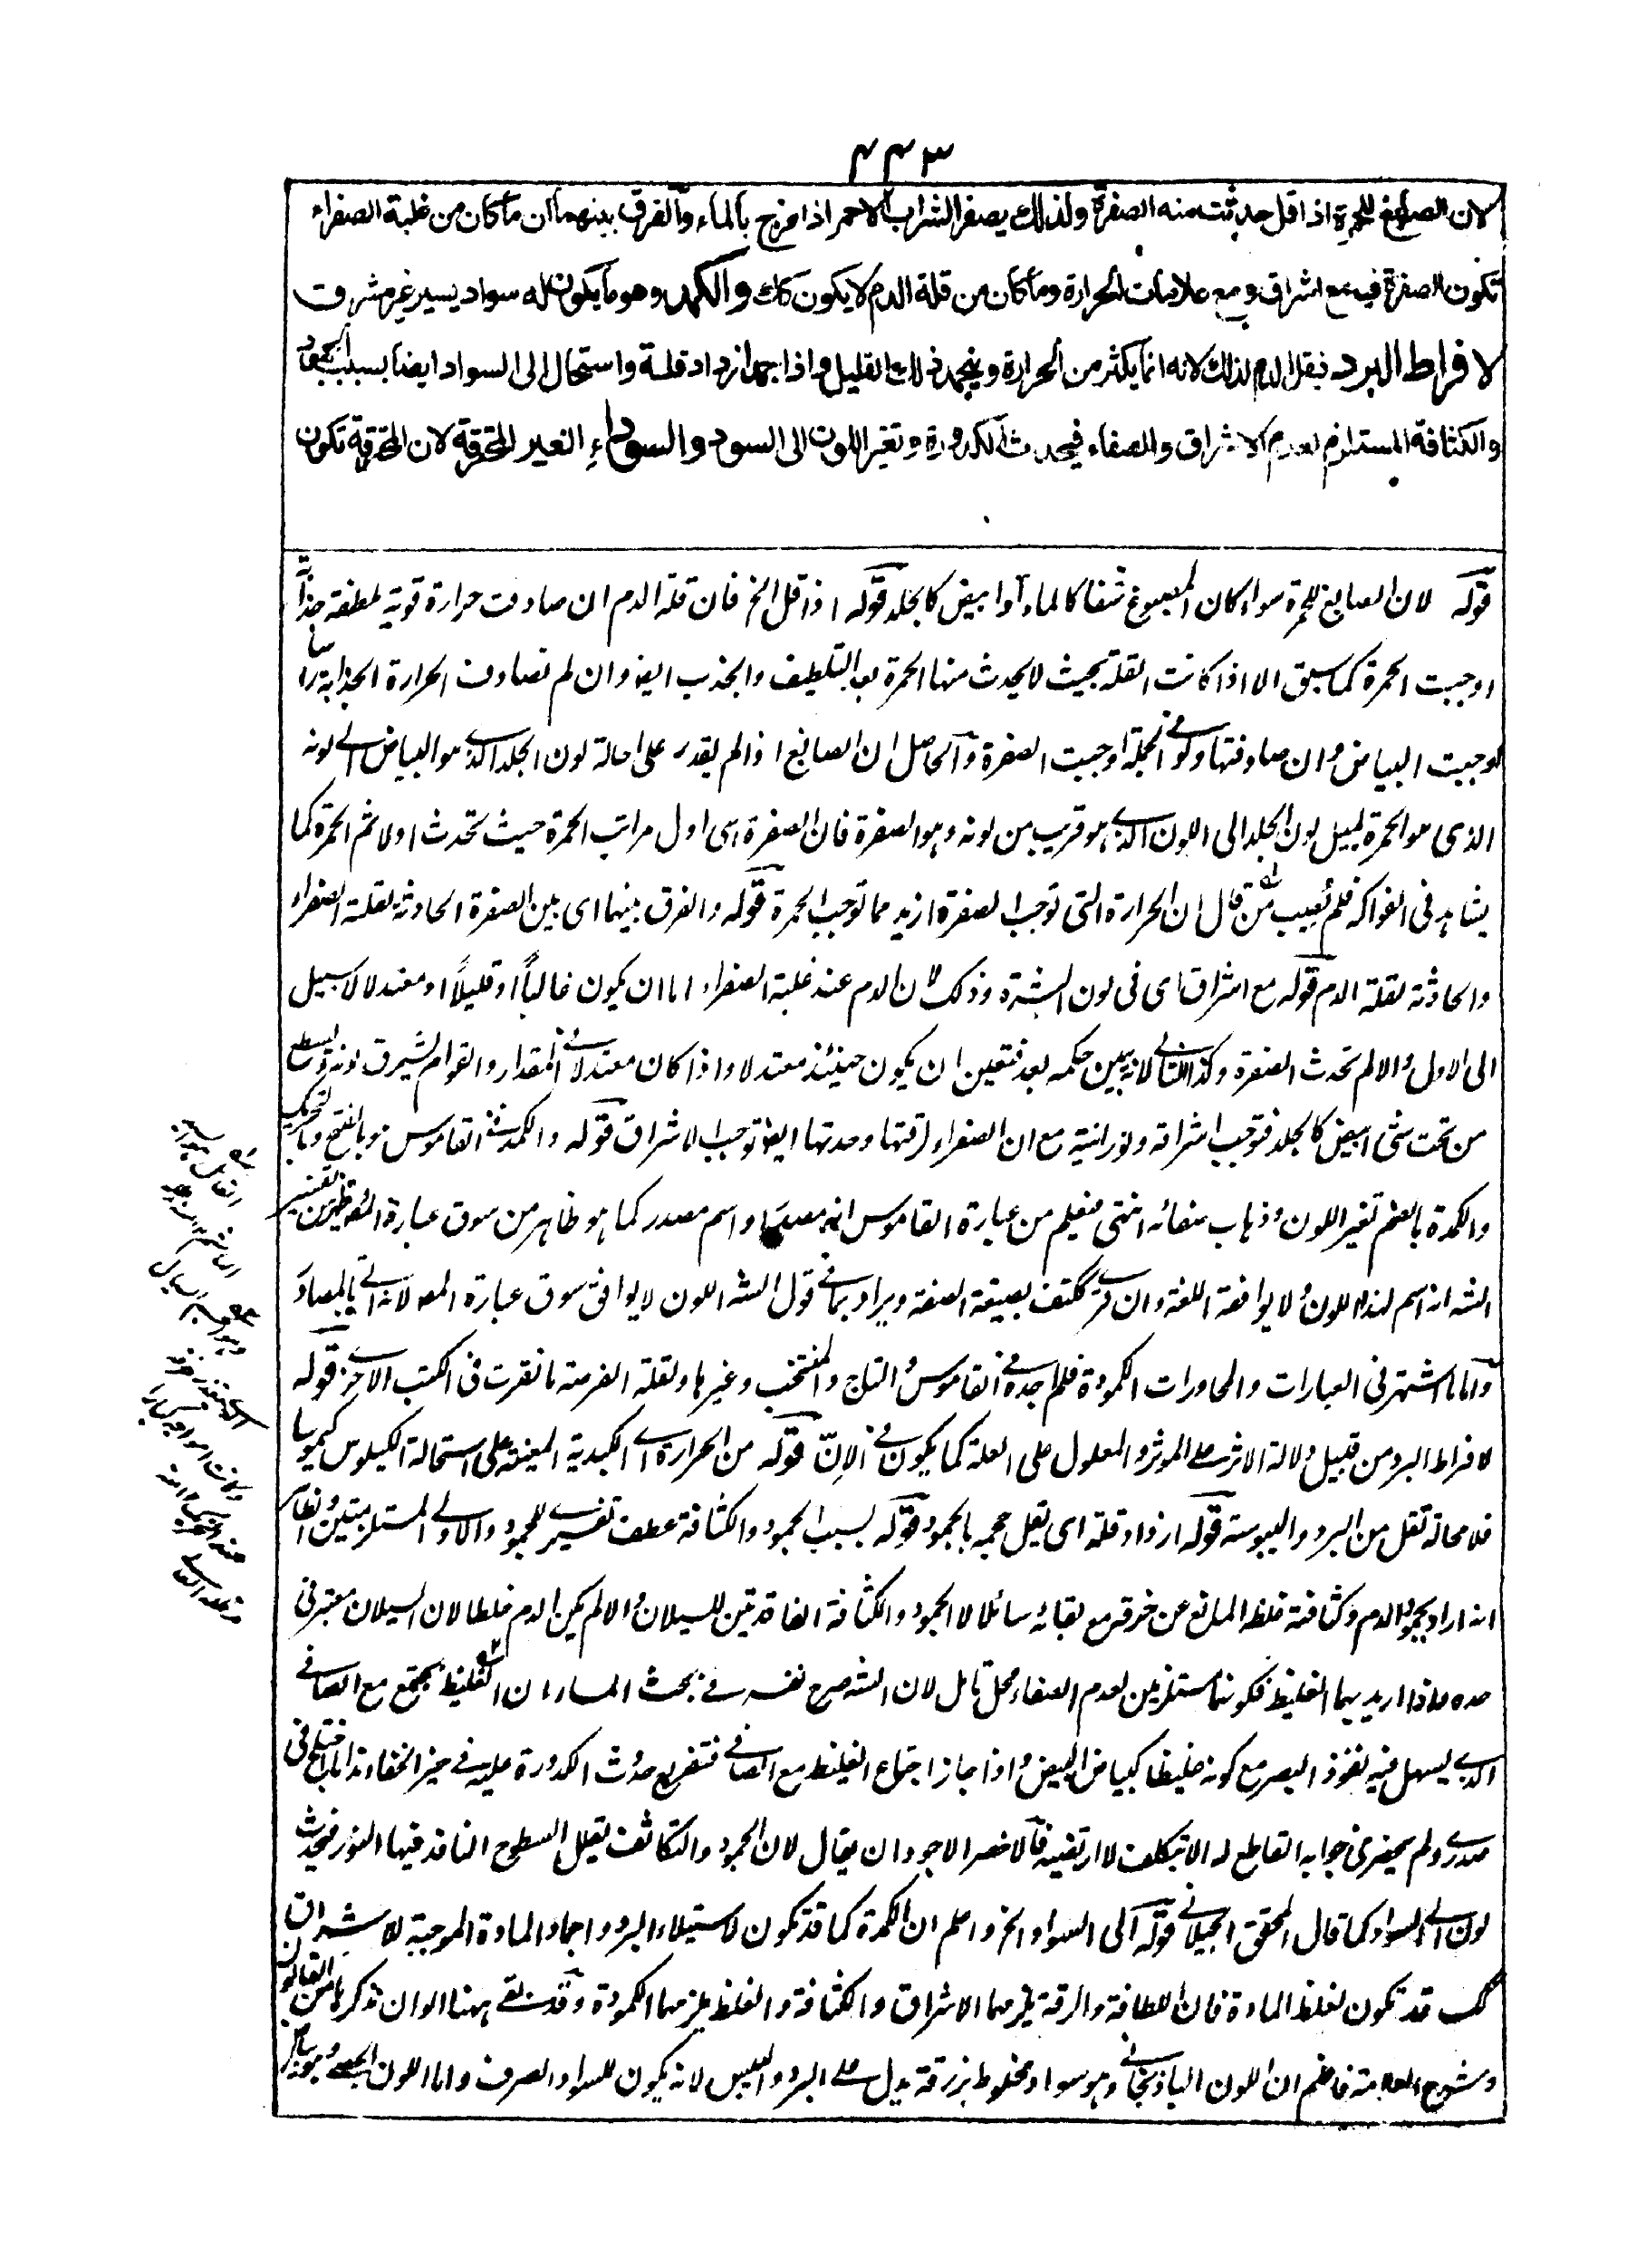 ٤٤٣
لان الصابغ للحمرة اذا قل حدثت منه الصفرة ولذلك يصفر الشراب الاحمر اذا مزج بالماء والفرق بينهما ان ما كان من غلبة الصفراء
تكون الصفرة فيه مع اشراق ومع علامات الحرارة وما كان من قلة الدم لا يكون كك والكمد وهو ما يكون له سواد يسير غير مشرق
لافراط البرد فيقل الدم لذلك لانه انما يكثر من الحرارة وينجمد ذلك القليل واذا جمد ازداد قلة واستحال الى السواد ايضا بسبب الجمود
والكثافة المستلزم لعدم الاشراق والصفاء فيحدث الكدورة وتغير اللون الى السود والسوداء الغير المحترقة لان المحترقة تكون
قوله لان الصابغ للحمرة سواء كان المصبوغ شفا كالماء او ابيض كالجلد قوله اذا قل الخ فان قلة الدم ان صادفت حرارة قوية ملطفة جذابة
اوجبت الحمرة كما سبق الا اذا كانت القلة بحيث لا يحدث منها الحمرة بعد التلطيف والجذب ايضا وان لم تصادف الحرارة الجذابة راسا
اوجبت البياض وان صادفتها ولو فى الجملة اوجبت الصفرة والحاصل ان الصابغ اذا لم يقدر على احالة لون الجلد الذى هو البياض الى لونه
الذى هو الحمرة يميل لون الجلد الى اللون الذى هو قريب من لونه وهو الصفرة فان الصفرة هى اول مراتب الحمرة حيث تحدث اولا ثم الحمرة كما
يشاهد فى الفواكه فلم يصب من قال ان الحرارة التى توجب الصفرة ازيد مما توجب الحمرة قوله والفرق بينهما اى بين الصفرة الحادثة لغلبة الصفراء
والحادثة لقلة الدم قوله مع اشراق اى فى لون البشرة وذلك لان الدم عند غلبة الصفراء اما ان يكون غالبًا او قليلًا او معتدلا لا سبيل
الى الاول والا لم تحدث الصفرة وكذا الثانى لانه يبين حكمه بعد فتعين ان يكون حينئذ معتدلا واذا كان معتدلا فى المقدار والقوام يشرق لونه
من تحت شى ابيض كالجلد فتوجب اشراقه ونورانيته مع ان الصفراء لرقتها وحدتها ايضا توجب الاشراق قوله والكمد فى القاموس هو بالفتح وبالتحريك
والكمدة بالضم تغير اللون وذهاب صفائه انتهى فيعلم من عبارة القاموس انه مصدر او اسم مصدر كما هو ظاهر من سوق عبارة
الشه انه اسم لهذا اللون لا يوافقه اللغة وان قرئ ككتف بصيغة الصفة ويراد بما فى قول الشه اللون لا يوافق سوق عبارة المصه لانه اتى بالمصادر
واما ما اشتهر فى العبارات والمحاورات الكمودة فلم اجده فى القاموس والتاج والمنتخب وغيرها ولقلة الفرصة ما نقرت فى الكتب الاخرى قوله
لافراط البرد من قبيل دلالة الاثر على الموثر والمعلول على العلة كما يكون فى الإنّ قوله من الحرارة اى الكبدية المعينة على استحالة الكيلوس كيموسا
فلا محالة تقل من البرد واليبوسة قوله ازداد قلة اى يقل حجمه بالجمود قوله بسبب الجمود والكثافة عطف تفسيرى للجمود والاولى المستلزمتين والظاهر
انه اراد بجمود الدم وكثافته غلظه المانع عن خرقه مع بقائه سائلا لا الجمود والكثافة الفاقدتين للسيلان والا لم يكن الدم خلطا لان السيلان معتبر فى
حده فاذا اريد بهما الغليظ فكونهما مستلزمين لعدم الصفاء محل تامل لان الشه صرح نفسه فى بحث المساء ان الغليظ يجتمع مع الصافى
الذى يسهل فيه نفوذ البصر مع كونه غليظا كبياض البيض واذا جاز اجتماع الغليظ مع الصافى فتفريع حدوث الكدورة عليه فى حيز الخفاء هذا ما اختلج فى
صدرى ولم يحضرنى جوابه القاطع له الا بتكلف لا ارتضيه فالاخصر الاجود ان يقال لان الجمود والتكاثف يقلل السطوح النافذ فيها النور فيحدث
لون الى السواد كما قال المحقق الجيلانى قوله الى السواد الخ واعلم ان الكمدة كما قد تكون لاستيلاء البرد واجماد المادة الموجبة للاشراق
كك قد تكون لغلظ المادة فان اللطافة والرقة يلزمهما الاشراق والكثافة والغلظ يلزمهما الكمودة وقد بقى ههنا الوان نذكرها من القانون
وشرح العلامة فاعلم ان اللون الباذنجانى وهو سواد مخلوط بزرقة يدل على البرد واليبس لانه يكون للسواد الصرف واما اللون الجصى